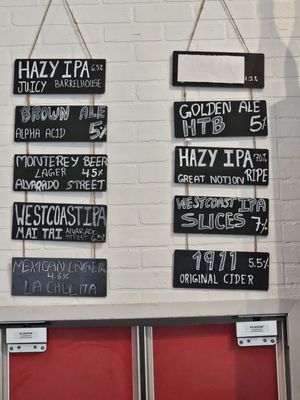 HAZY IPA 6.5%
JUICY BARRELHOUSE
BROWN ALE
ALPHA ACID 5%
MONTEREY BEER
LAGER 4.5%
ALVARADO STREET
WESTCOAST IPA
MAI TAI ALVARADO STREET
MEXICAN LAGER
4.6%
LA CHULITA
4.2%
GOLDEN ALE
HTB 5%
HAZY IPA 7.0%
GREAT NOTION RIPE
WESTCOAST IPA
SLICES 7%
1911 5.5%
ORIGINAL CIDER